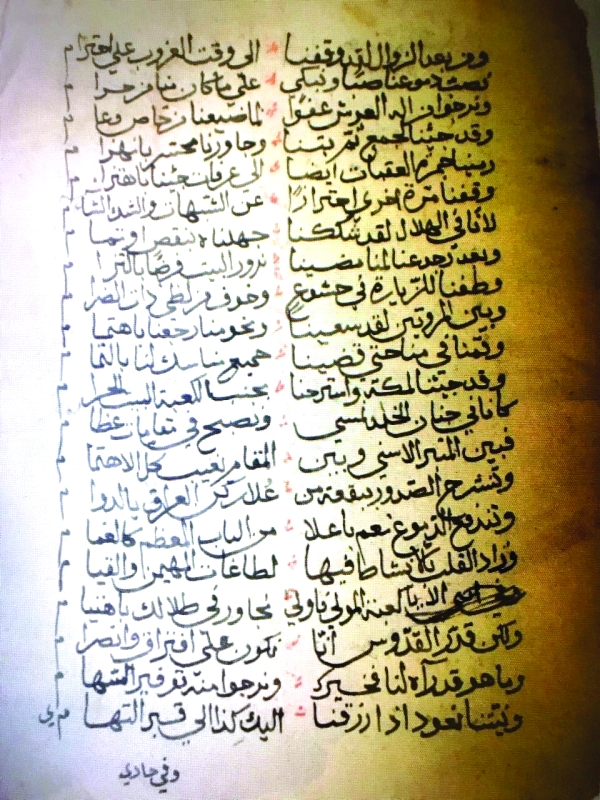 ومن بعد الزوال لقد وقفنا الى وقت الغروب على احترام
نصب دموعنا صبا ونبكي على ما كان منا من حرام
ونرجوا من اله العرش عفوا لما ضيعنا من خاص وعام
وقد جئنا لجمع ثم بتنا وجاوزنا محسر بانهزام
رمينا جمرة العقبات ايضا الى عرفات جئنا باهتزام
وقفنا مرة اخرى احترازا عن الشبهات والشد الشام
لأنا في الهلال لقد شككنا جهلناه بنقص او تمام
وبعد رجوعنا لمنا مضينا نزور البيت فرضا بالتزام
وطفنا للزيارة في خشوع وخوف من لظى ذات الضرام
وبين المروتين لقد سعينا ونحو منا رجعنا باهتمام
وقمنا في منا حتى قضينا جميع مناسك لنا بالتمام
وقد جئنا لمكة واسترحنا بجنب الكعبة البيت الحرام
كأنا في جنان الخلد نمسي ونصبح في نعيمات عظام
فبين المنبر الاسني وبين المقام نغيب كل الاهتمام
وتنشرح الصدور ببقعة من علا ركن العراقي بالدوام
وتندفع الدموع نعم باعلا من الباب المعظم كالغمام
وزاد القلب بلانشاط فيها لطاعات المهيمن والقيام
الا يا كعبة المولى باولي نجاور في ظلالك باهنيام
ولكن قدر القدوس أنا نكون على افتراق وانصرام
وما هو قدرآه لنا فخير ونرجوا منه توفير السهام
ونيتنا نعود اذا رزقنا اليك كذا الى قبر التهامي
وفي جادي